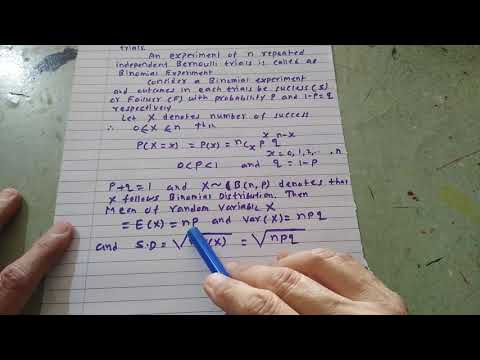 trials.
An experiment of n repeated
independent Bernoulli trials is called as
Binomial Experiment
Consider a Binomial experiment
and outcomes in each trials be success (s)
or Failure (F) with probability P and 1-P = q
respectively
Let X denotes number of success
∴ 0 ≤ X ≤ n then
P(X = x) = P(x) = ⁿCₓ pˣ qⁿ⁻ˣ
x = 0, 1, 2, ... n
0 < P < 1 and q = 1-P
P + q = 1 and X ~ B(n, p) denotes that
X follows Binomial Distribution. Then
Mean of random variable X
= E(X) = np and var(X) = npq
and S.D = √ (X) = √npq